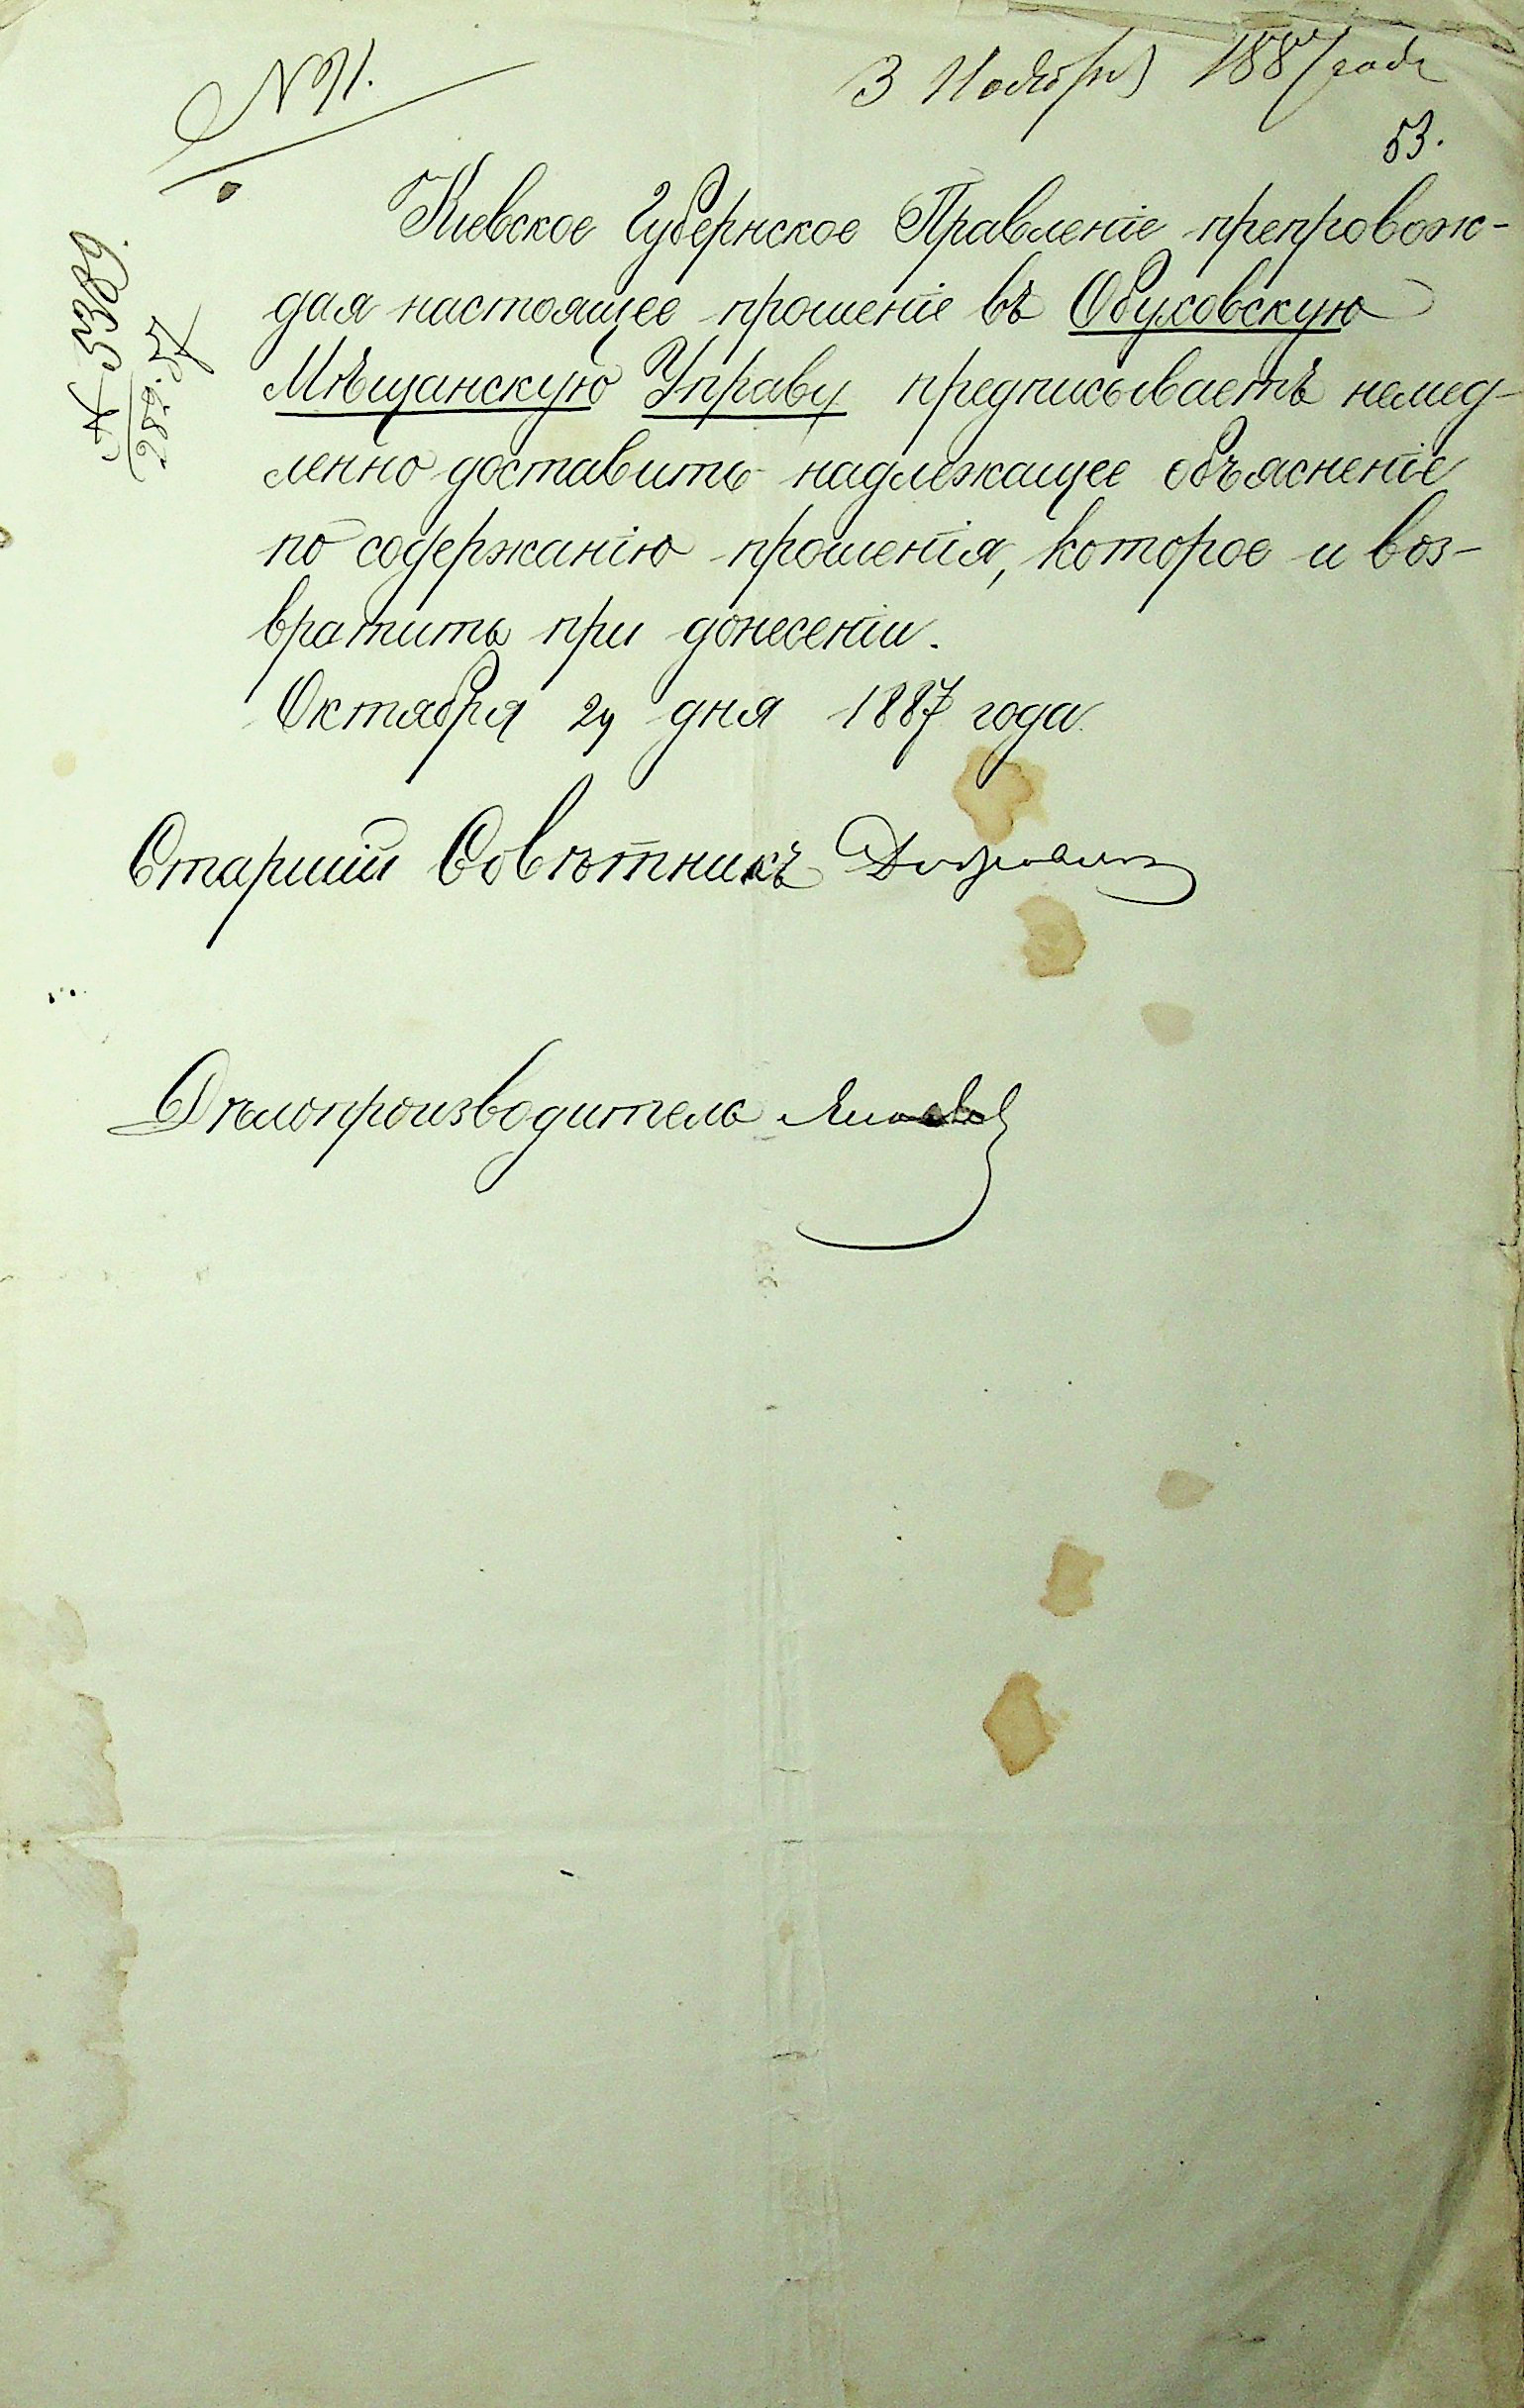 № 91.
3 Ноября 1887 года
53.
№ 5389.
Кіевское Губернское Правленіе препровож-
дая настоящее прошеніе въ Обуховскую
Мѣщанскую Управу предписываетъ немед-
ленно доставить надлежащее объясненіе
по содержанію прошенія, которое и воз-
вратить при донесеніи.
Октября 29 дня 1887 года.
Старшій Совѣтникъ
Дѣлопроизводитель